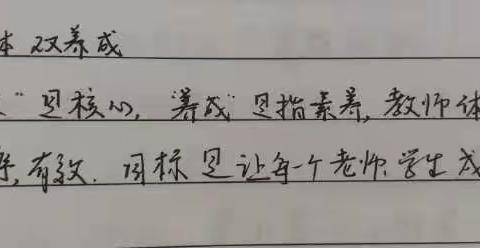 体 双养成
”是核心, “养成”是指素养, 教师体
有效. 目标是让每一个老师、学生成